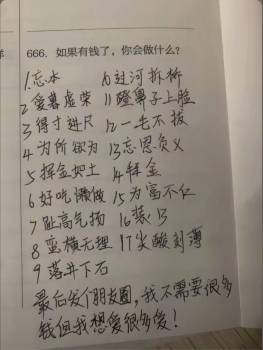 666. 如果有钱了，你会做什么？
1.忘本 10过河拆桥
2爱慕虚荣 11蹬鼻子上脸
3得寸进尺 12一毛不拔
4为所欲为 13忘恩负义
5挥金如土 14拜金
6好吃懒做 15为富不仁
7趾高气扬 16装13
8蛮横无理 17尖酸刻薄
9落井下石
最后发个朋友圈，我不需要很多
钱但我想爱很多爱！